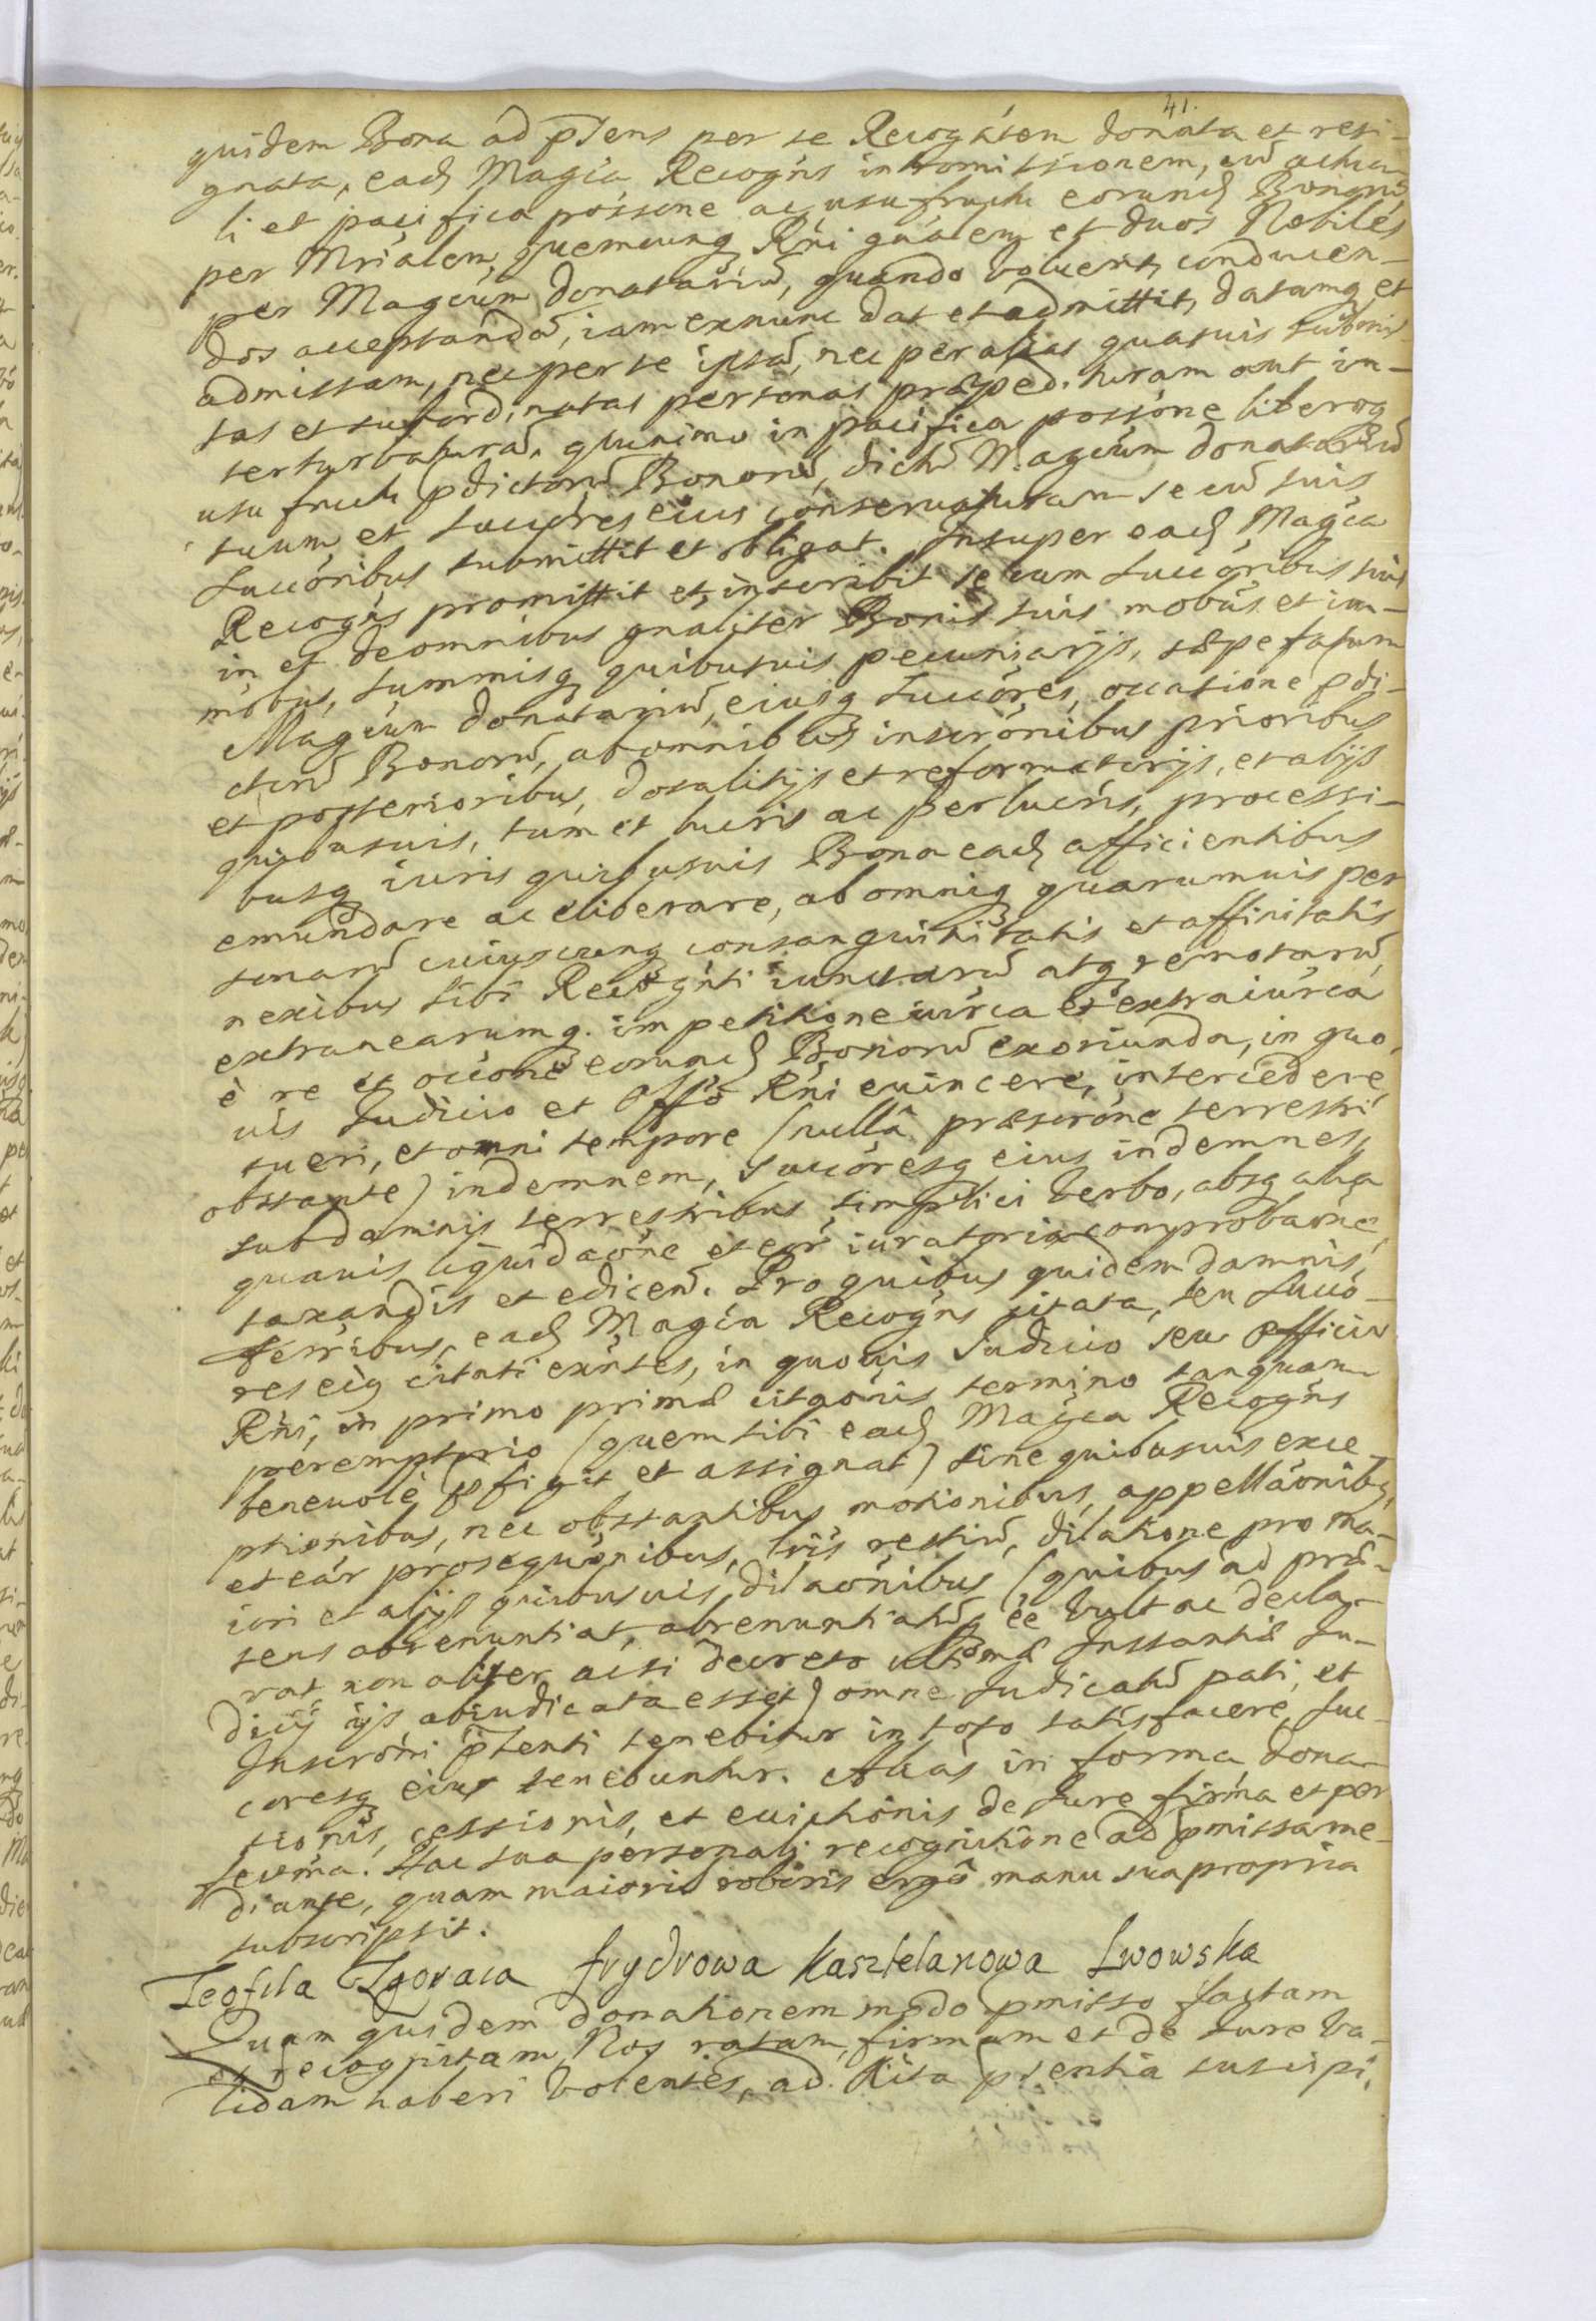 41.
quidem Bona ad p̄sens per se Recogńtem donata et resi-
gnata, eadȝ Magća Recogńs intromissionem, cū actua-
li et pacifica possńne ac usufructu eorundȝ Bonorū
per Mńialem, quemcunqȝ Rńi gńalem et duos Nobiles
per Magćum donatariū, quando voluerit, conducen-
dos acceptandā, iam exnunc dat et admittit, datamqȝ et
admissam, nec per se ipsā, nec per alias quasuis submis-
sas et subordinatas personas præpedituram aut in-
terturbaturā, quinimo in pacifica possńne liberoqȝ
usu fructu p̄dictorū Bonorū, dictū Magćum donatariū
suum, et succóres eius conseruaturam se cū suis
succóribus submittit et obligat. Insuper eadȝ Magća
Recogńs promittit et inscribit se cum succóribus suis
in et de omnibus gńaliter Bonis suis mobús et im-
mobus, summisqȝ quibusuis pecuniarijs, sæpefatum
Magćum donatariū, eiusqȝ succóres, occasione p̄di-
ctorū Bonorū, ab omnibus inscrónibus prioribus
et posterioribus, dotalitijs et reformatorijs, et alijs
quibusuis, tum et lucris ac perlucris, processi-
busqȝ iuris quibusuis Bona eadȝ afficientibus
emundare ac eliberare, ab omniqȝ quarumuis per
sonarū cuiuscunqȝ consanguinitatis et affinitatis
nexibus sibi Recogńti iunctarū atqȝ remotarū,
extranearumqȝ. impetitione iurća et extraiurća
è re et occóne eorundȝ Bonorū exoriunda, in quo-
uis Iudicio et Offo Rńi euincere, intercedere
tueri, et omni tempore (nullâ præscróne terrestri
obstante) indemnem, succóresqȝ eius indemnes,
sub damnis terrestribus simplici verbo, absqȝ aliqa
quauis liquidaóne et cór iuratoria comprobaóne,
taxandis et edicen̄. Pro quibus quidem damnis,
terribus, eadȝ Magća Recogńs citata, seu succó-
res eiȝ citati exńtes, in quouis Iudicio seu officio
Rńi, in primo primæ citaónis termino tanquam
peremptorio (quem sibi eadȝ Magća Recogńs
beneuolè p̄figit et assignat) sine quibusuis exce-
ptionibus, nec obstantibus motionibus, appellaónibȝ,
et eár prosequónibus, lris restiū, dilatione pro ma-
iori et alijs quibusuis dilaónibus (quibus ad præ-
sens abrenuntiat, abrenuntiatūqȝ ee vult ac decla-
rat non aliter ac si decreto ultimæ Instantiæ Iu-
dicij ijs abiudicata esset) omne Iudicatū pati, et
Inscróni p̄senti tenebitur in toto satisfacere, suc-
coresqȝ eius tenebuntur. Aliàs in forma dona-
tionis, cessionis, et euictionis de Iure firma et per
secuta. Hac sua personali recognitione ad p̄missa me-
diante, quam maioris roboris ergô manu sua propria
subscripsit.
Teofila Zgoraia frydrowa Kasztelanowa Lwowska
Quam quidem donationem modo p̄misso factam
et recognitam, Nos ratam, firmam et de Iure va-
lidam haberi volentes, ad. Acta p̄sentia suscipi.